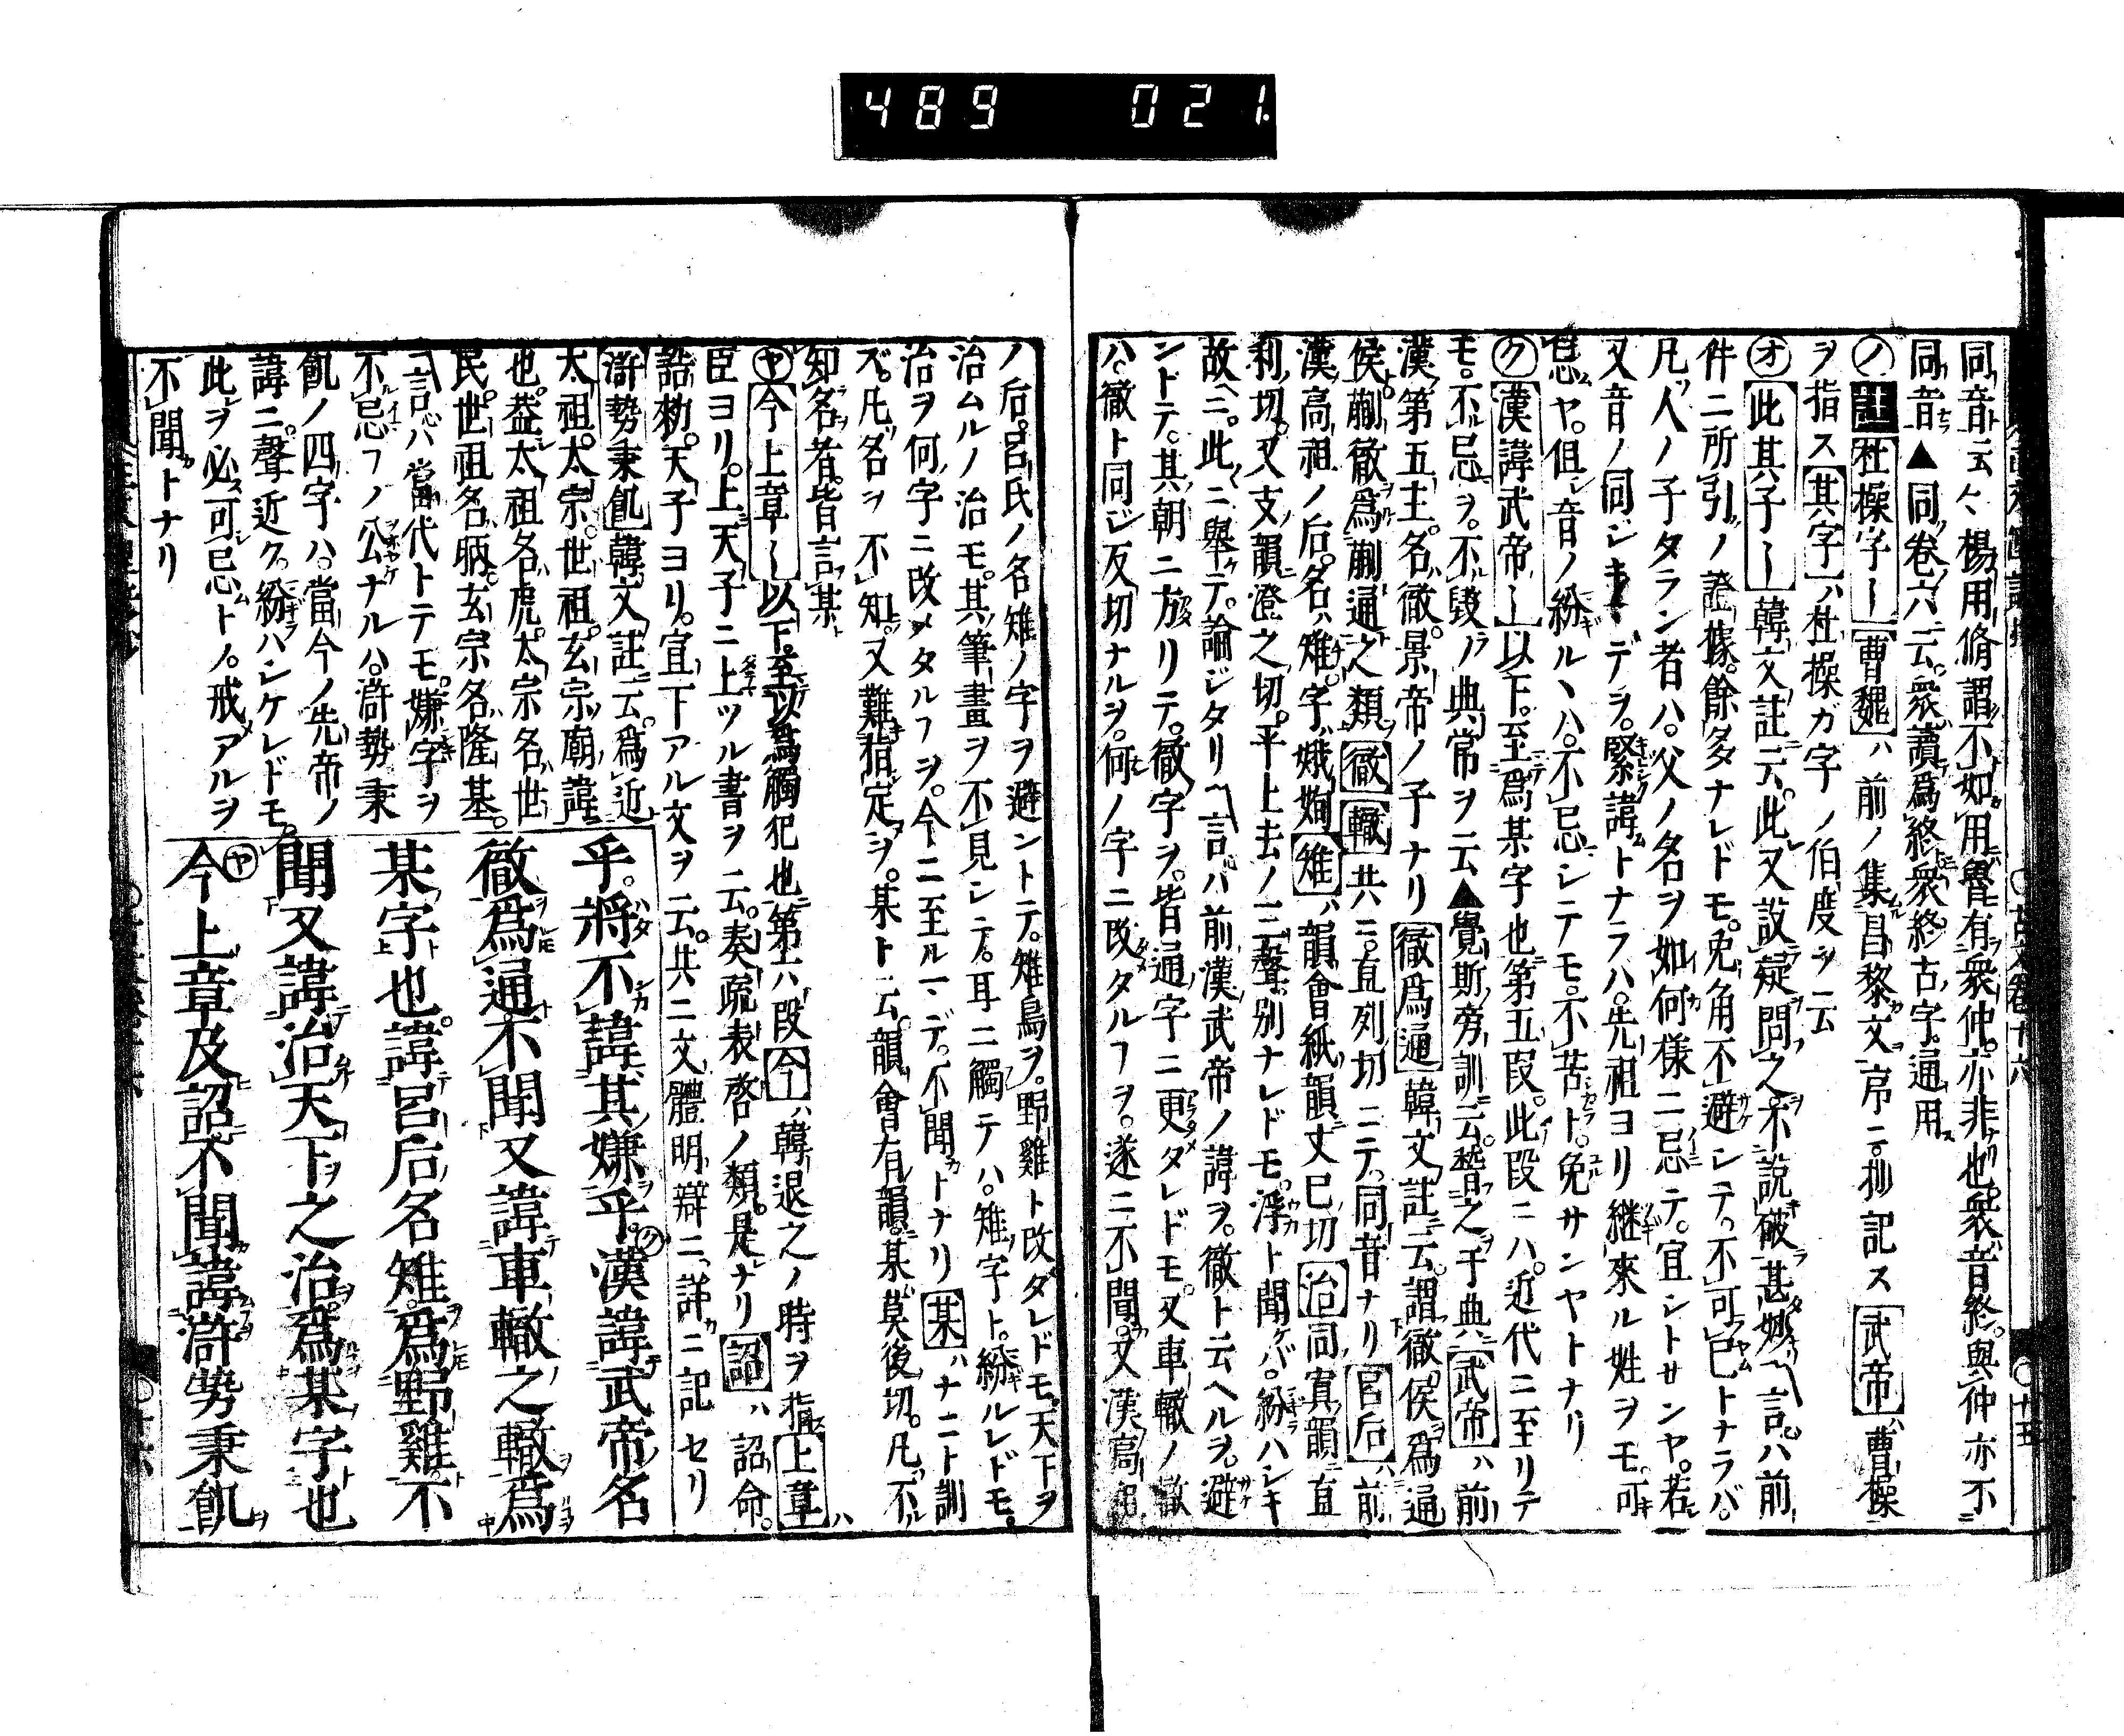 489 021
同音云々楊用脩謂不如用魯有衆仲亦非也衆音終與仲亦不
同音▲同巻六ニ云。衆讀爲終衆終古字通用
ノ 註 杜操字｜ 曹魏ハ前ノ集昌黎文序ニ抄記ス 武帝ハ曹操
ヲ指ス 其字ハ杜操ガ字ノ伯度ヲ云
オ 此其子｜ 韓文註ニ云。此又設疑問之不説破甚妙言ハ前
件ニ所引ノ證據。餘多ナレドモ。兎角不避シテ。不可已トナラバ。
凡人ノ子タラン者ハ。父ノ名ヲ如何様ニ忌テ。宜シトサンヤ。若
又音ノ同ジキマデヲ。緊諱トナラハ。先祖ヨリ継來ル姓ヲモ。可
忌ヤ。但音ノ紛ルヽハ。不忌シテモ。不苦ト。免サンヤトナリ
ク 漢諱武帝｜ 以下。至爲某字也第五段。此段ニハ。近代ニ至リテ
モ。不忌ヲ。不毀ノ典常ヲ云▲覺斯旁訓云。稽之于典 武帝ハ前
漢第五主。名徹。景帝ノ子ナリ 徹爲通 韓文註ニ云。謂徹侯爲通
侯蒯徹爲蒯通之類 徹 轍 共ニ。直列切ニテ。同音ナリ 呂后ハ前
漢高祖ノ后。名ハ雉。字ハ娥姁 雉ハ韻會紙韻丈已切 治 同寘韻直
利切。又支韻澄之切。平上去ノ三聲別ナレドモ。浮ト聞ケバ。紛ハシキ
故ヘニ。此ニ舉テ。論ジタリ言ハ前漢武帝ノ諱ヲ。徹ト云ヘルヲ。避
ントテ。其朝ニ方リテ。徹字ヲ。皆通字ニ更タレドモ。又車轍ノ轍
ハ。徹ト同ジ反切ナルヲ。何ノ字ニ改タルヿヲ。遂ニ不聞。又漢高祖
ノ后。呂氏ノ名雉ノ字ヲ避ントテ。雉鳥ヲ。野雞ト改タレドモ。天下ヲ
治ムルノ治モ。其筆畫ヲ不見シテ。耳ニ觸テハ。雉字ト。紛ルレドモ。
治ヲ何字ニ改メタルヿヲ。今ニ至ルマデ。不聞トナリ 某ハナニト訓
ズ。凡名ヲ不知。又難指定ヲ。某ト云。韻會有韻。某莫後切。凡不
知名者。皆言某
ヤ 今上章｜ 以下。至以爲觸犯也第六段 今ハ韓退之ノ時ヲ指 上章ハ
臣ヨリ。上天子ニ上ツル書ヲ云。奏疏表啓ノ類。是ナリ 詔ハ詔命。
誥勑。天子ヨリ。宣下アル文ヲ云。共ニ文體明辯ニ詳ニ記セリ
滸勢秉飢 韓文註云。爲近
太祖。太宗。世祖。玄宗廟諱
也。葢太祖名虎。太宗名世
民。世祖名昞。玄宗名隆基。
言ハ當代トテモ。嫌字ヲ
不忌フノ公ナルハ。滸勢秉
飢ノ四字ハ。當今ノ先帝ノ
諱ニ。聲近ク。紛ハシケレドモ。
此ヲ必可忌トノ。戒アルヲ
不聞トナリ
乎。將不諱其嫌乎。漢諱武帝名
徹爲通不聞又諱車轍之轍爲
某字也。諱呂后名雉爲野雞不
聞又諱治天下之治爲某字也
今上章及詔不聞諱滸勢秉飢